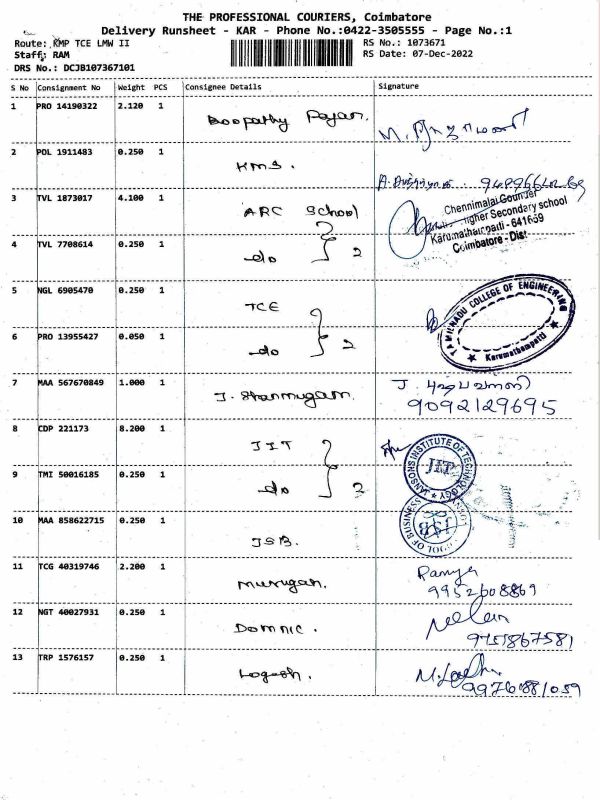 THE PROFESSIONAL COURIERS, Coimbatore
Delivery Runsheet - KAR - Phone No.:0422-3505555 - Page No.:1
Route: KMP TCE LMW II
RS No.: 1073671
Staff: RAM
RS Date: 07-Dec-2022
DRS No.: DCJB107367101
S No Consignment No Weight PCS Consignee Details Signature
1 PRO 14190322 2.120 1 Boopathy Rajan.
2 POL 1911483 0.250 1 KMS.
3 TVL 1873017 4.100 1 ARC School
Chennimalai Gounder
Higher Secondary school
Karumathampatti - 641659
Coimbatore - Dist
4 TVL 7708614 0.250 1 do 2
5 NGL 6905470 0.250 1 TCE
TAMILNADU COLLEGE OF ENGINEERING
Karumathampatti
6 PRO 13955427 0.050 1 do 2
7 MAA 567670849 1.000 1 J. Shanmugam. J.
9092129695
8 CDP 221173 8.200 1 JIT
JANSONS INSTITUTE OF TECHNOLOGY
JIT
9 TMI 50016185 0.250 1 do 2
10 MAA 858622715 0.250 1 JSB.
SCHOOL OF BUSINESS
JSB
11 TCG 40319746 2.200 1 Murugan. Ramya
9952608869
12 NGT 40027931 0.250 1 Domnic.
9751867581
13 TRP 1576157 0.250 1 Logesh.